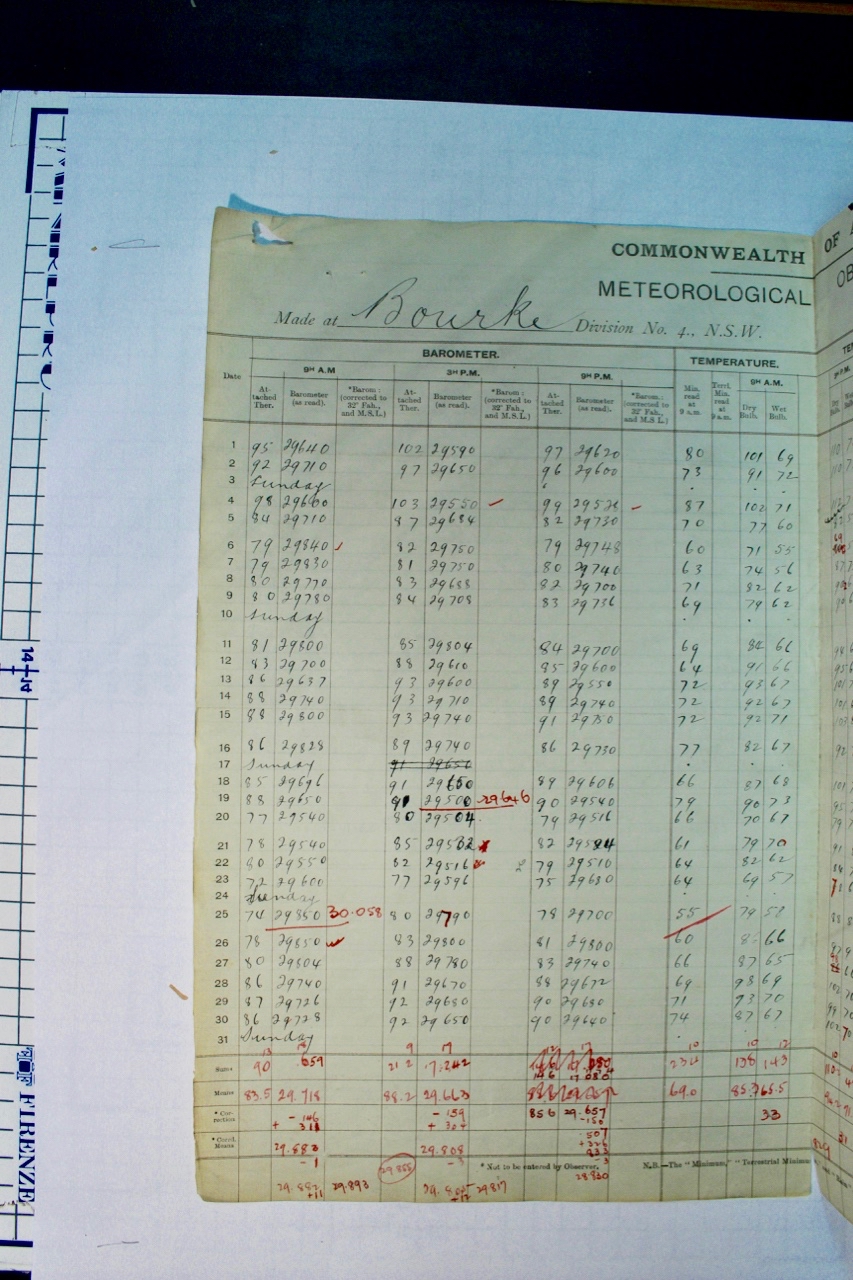 COMMONWEALTH OF
METEOROLOGICAL OB
Made at Bourke Division No. 4., N.S.W.
BAROMETER. TEMPERATURE.
Date 9H A.M 3H P.M. 9H P.M. 9H A.M.
At-tached Ther. Barometer (as read). *Barom: (corrected to 32° Fah., and M.S.L.) At-tached Ther. Barometer (as read). *Barom: (corrected to 32° Fah., and M.S.L.) At-tached Ther. Barometer (as read). *Barom: (corrected to 32° Fah., and M.S.L.) Min. read at 9 a.m. Terrl. Min. read at 9 a.m. Dry Bulb. Wet Bulb.
1 95 29640 102 29590 97 29620 80 101 69
2 92 29710 97 29650 96 29600 73 91 72
3 Sunday
4 98 29600 103 29550 99 29520 87 102 71
5 84 29710 87 29684 82 29730 70 77 60
6 79 29840 82 29750 79 29748 60 71 55
7 79 29830 81 29750 80 29740 63 74 56
8 80 29770 83 29688 82 29700 71 82 62
9 80 29780 84 29708 83 29736 69 79 62
10 Sunday
11 81 29800 85 29804 84 29700 69 84 66
12 83 29700 88 29610 85 29600 64 91 66
13 86 29637 93 29600 89 29550 72 93 67
14 88 29740 93 29710 89 29740 72 92 67
15 88 29800 93 29740 91 29750 72 92 71
16 86 29828 89 29740 86 29730 77 82 67
17 Sunday 91 29650
18 85 29696 91 29650 89 29606 66 87 68
19 88 29650 91 29500 29646 90 29540 79 90 73
20 77 29540 80 29504 79 29516 66 70 67
21 78 29540 85 29532 82 29584 61 79 70
22 80 29550 82 29516 79 29510 64 82 62
23 72 29600 77 29596 75 29680 64 69 57
24 Sunday
25 74 29850 30.058 80 29790 78 29700 55 79 58
26 78 29850 83 29800 81 29800 60 66
27 80 29804 88 29780 83 29740 66 87 65
28 86 29740 91 29670 88 29672 69 98 69
29 87 29726 92 29680 90 29680 71 93 70
30 86 29728 92 29650 90 29640 74 87 67
31 Sunday
13 9 17 12 17 10 10 12
Sums 90 .659 212 17.242 17.080 234 138 143
Means 83.5 29.718 88.2 29.663 69.0 85.3 65.5
* Cor-rection - 146 - 159 856 29.657 33
+ 311 + 304 -150
507
* Corrd. Means 29.883 29.808 +326
833
- 1 29.855 - 3 * Not to be entered by Observer. - 3 N.B.—The "Minimum," "Terrestrial Minimum
28830
29.882 29.893 29.805 29817
+11 +12
14
FIRENZE